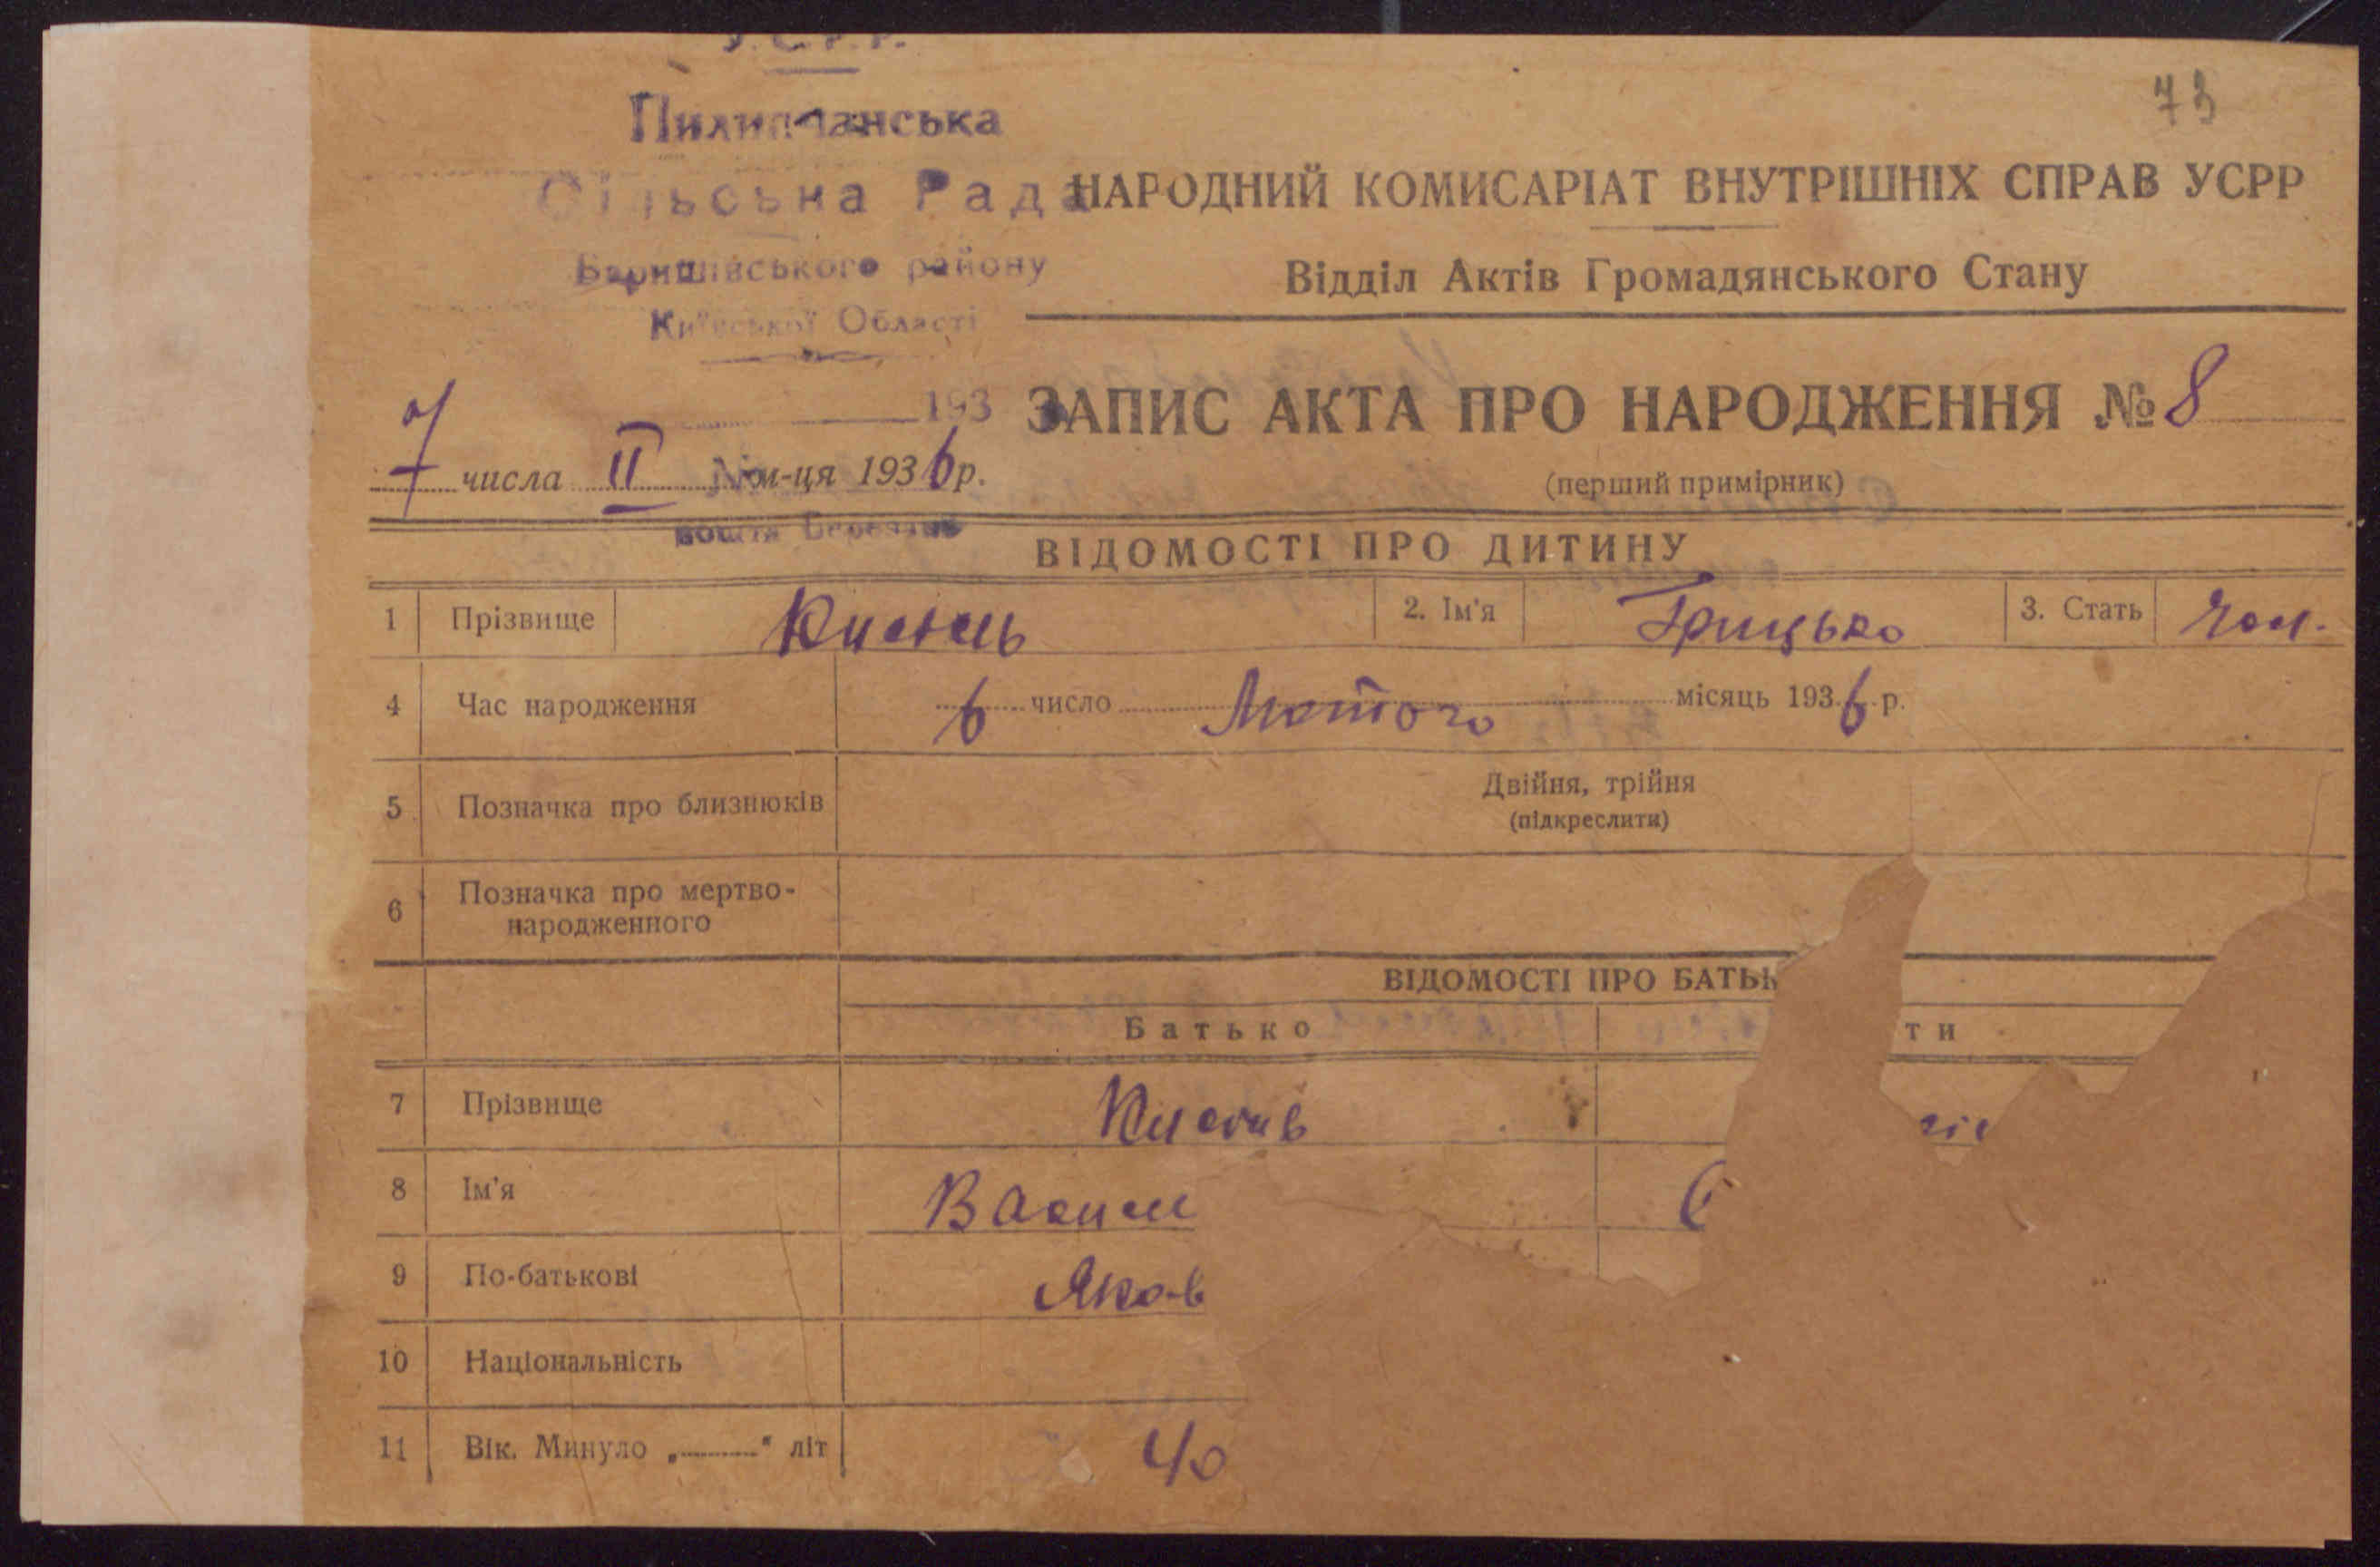 У.С.Р.Р.
73
Пилипчанська
Сільська Рада
НАРОДНИЙ КОМИСАРІАТ ВНУТРІШНІХ СПРАВ УСРР
Баришівського району
Відділ Актів Громадянського Стану
Київської Області
193
ЗАПИС АКТА ПРО НАРОДЖЕННЯ № 8
7 числа II м-ця 1936 р.
(перший примірник)
ВІДОМОСТІ ПРО ДИТИНУ
1 Прізвище Кисель 2. Ім'я Грицько 3. Стать Чол.
4 Час народження 6 число Лютого місяць 1936 р.
5 Позначка про близнюків Двійня, трійня
(підкреслити)
6 Позначка про мертво-
народженного
ВІДОМОСТІ ПРО БАТЬК
Батько ти
7 Прізвище
8 Ім'я Васил
9 По-батькові Яков
10 Національність
11 Вік. Минуло „ " літ 40